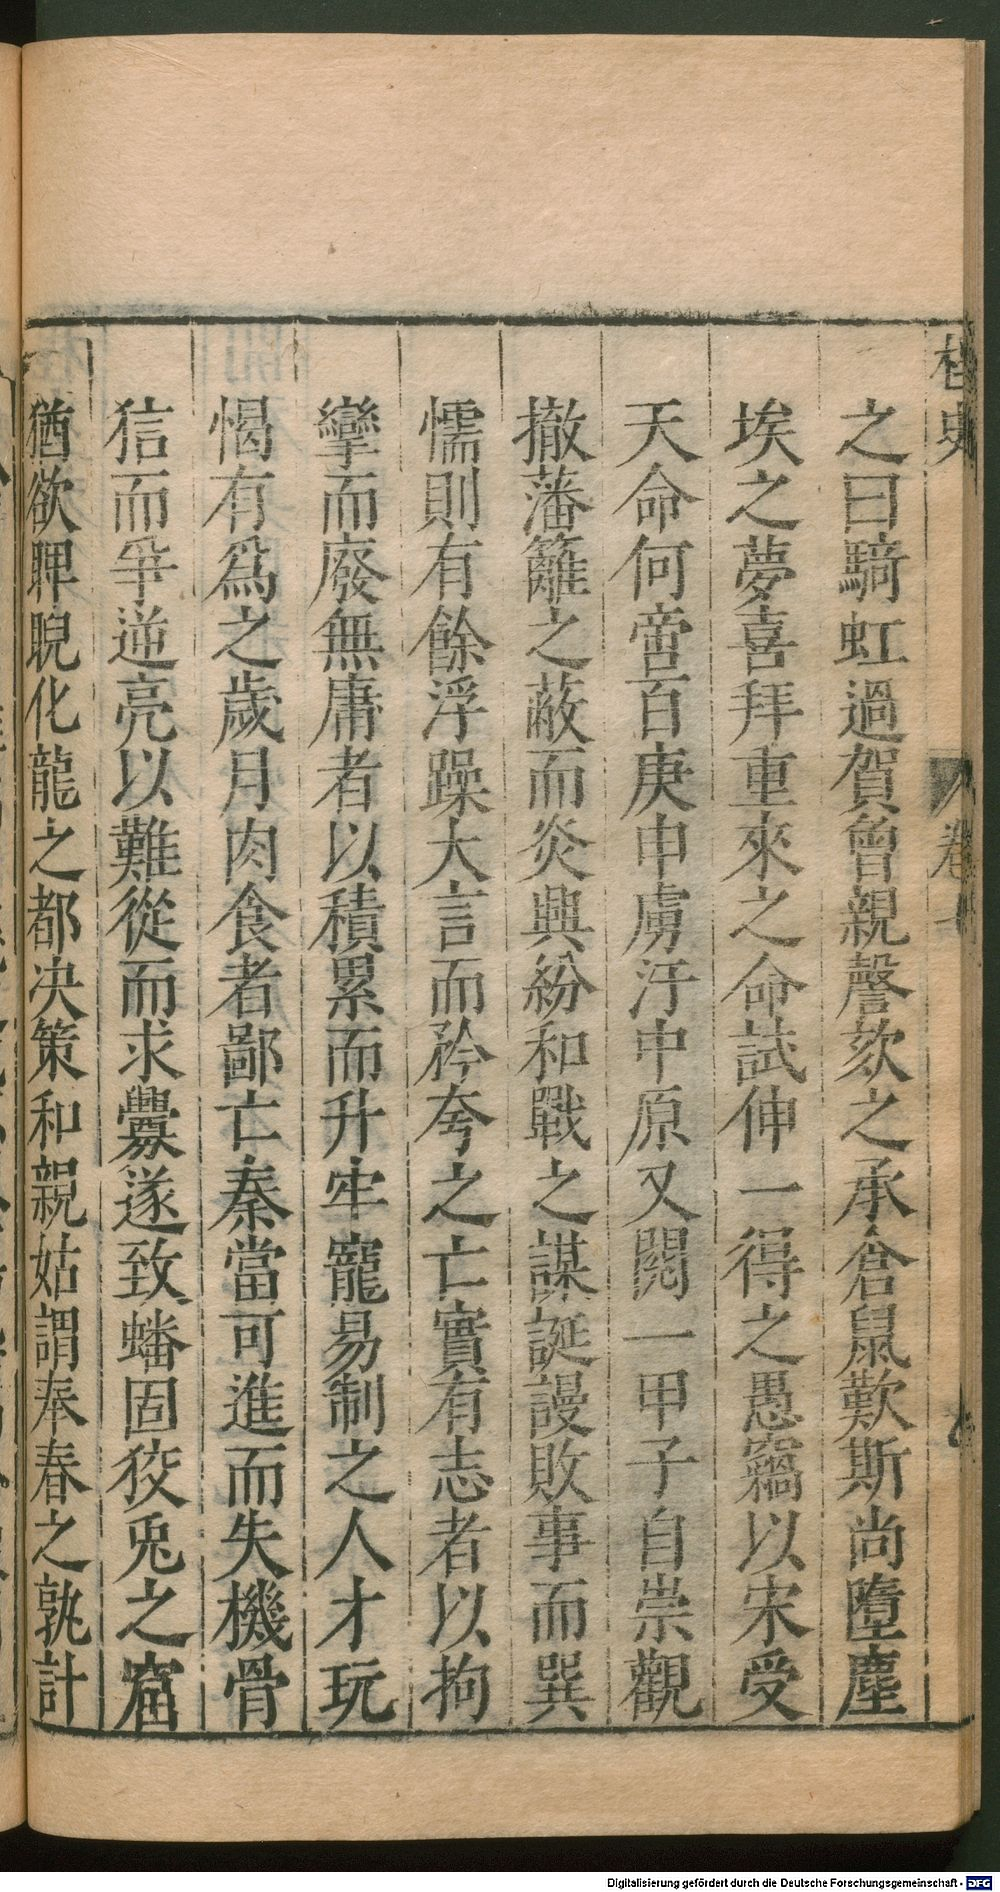 桯史
卷七
之曰騎虹過賀曾親謦欬之承倉鼠歎斯尚墮塵
埃之夢喜拜重來之命試伸一得之愚竊以宋受
天命何啻百庚申虜汙中原又閱一甲子自崇觀
撤藩籬之蔽而炎興紛和戰之謀誕謾敗事而巽
懦則有餘浮躁大言而矜夸之亡實有志者以拘
攣而廢無庸者以積累而升牢寵易制之人才玩
愒有爲之歲月肉食者鄙亡秦當可進而失機骨
信而爭逆亮以難從而求釁遂致蟠固狡兎之窟
猶欲睥睨化龍之都决策和親姑謂奉春之孰計
Digitalisierung gefördert durch die Deutsche Forschungsgemeinschaft - DFG